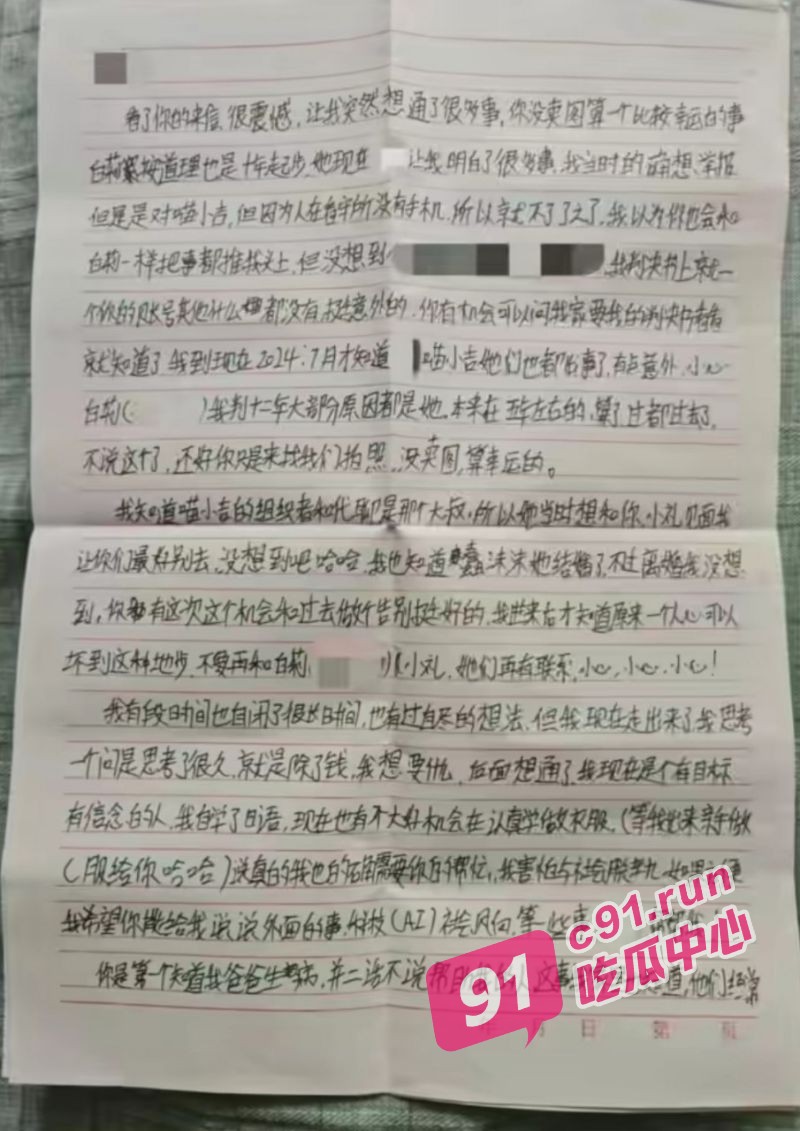 看了你的来信,很震憾,让我突然想通了很多事,你没卖图算一个比较幸运的事
白莉 按道理也是十年起步,她现在 让我明白了很多事,我当时的 想举报
但是是对喵小吉,但因为人在看守所没有手机,所以就不了了之了,我以为你也会和
白莉一样把事都推我头上,但没想到 ,我判决书上就一
个你的账号其他什么 都没有,挺意外的,你有机会可以问我家要我的判决书看看
就知道了,我到现在2024.7月才知道 喵小吉她们也都出事了,有点意外,小心
白莉( )我判十二年大部分原因都是她,本来在 年左右的,算了,过都过去了,
不说这个了,还好你只是来找我们拍照,没卖图,算幸运的。
我知道喵小吉的组织者和代聊是那个大叔,所以她当时想和你,小礼见面我
让你们最好别去,没想到吧哈哈,我也知道 沫沫她结婚了,不过离婚我没想
到,你能有这次这个机会和过去做个告别挺好的,我进来后才知道原来一个人心可以
坏到这种地步,不要再和白莉 小礼,她们再有联系,小心,小心,小心!
我有段时间也自闭了很长时间,也有过自尽的想法,但我现在走出来了,我思考
一个问题思考了很久,就是除了钱,我想要什么,后面想通了,我现在是个有目标
有信念的人,我自学了日语,现在也有个大好机会在认真学做衣服,(等我出来亲手做
(服给你哈哈)说真的我也的确需要你的帮忙,我害怕与社会脱轨,如果方便
我希望你 给我说说外面的事,科技(AI)社会风向,等一些事
你是第一个知道我爸爸生病,并二话不说帮助 的人,这事 道,他们经常
年 月 日 第 页
91 c91.run
吃瓜中心